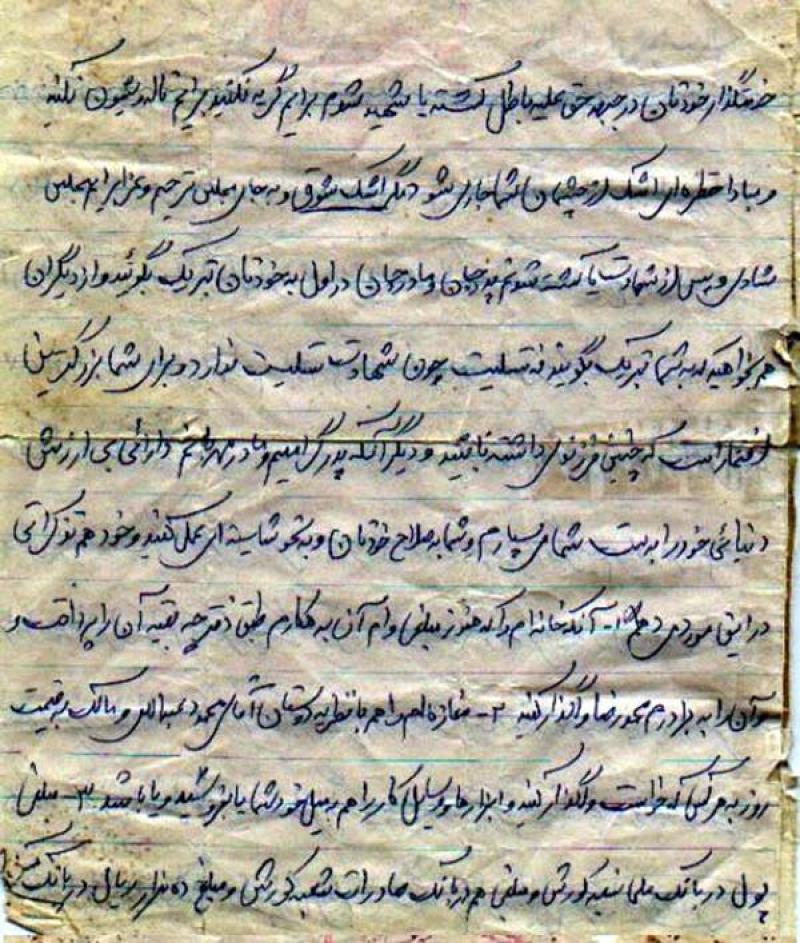 خدمتگذار خودتان در جبهه حق علیه باطل کشته یا شهید شوم برایم گریه نکنید برایم ناله و شیون نکنید
و مبادا قطره‌ای اشک از چشمان شما جاری شود مگر اشک شوق و به جای مجلس ترحیم و عزا برایم مجلس
شادی و پس از شهادت یا کشته شدنم پدر جان و مادر جان در اول به خودتان تبریک بگوئید و از دیگران
هم بخواهید که به شما تبریک بگویند نه تسلیت چون شهادت تسلیت ندارد و برای شما بزرگترین
افتخار است که چنین فرزندی داشته باشید و دیگر آنکه پدر گرامیم و مادر مهربانم دارائی بی ارزش
دنیائی خود را بدست شما می سپارم و شما به صلاح خودتان و بنحو شایسته ای عمل کنید و خود هم تذکراتی
در این مورد می دهم ۱- آنکه خانه ام را که هنوز مبلغی وام آن بدهکارم طبق دفترچه بقیه آن را پرداخت و
و آن را به برادرم محمدرضا واگذار کنید ۲- مغازه ام را هم با نظر دوستان آقای محمد عبداللهی و مالک به قیمت
روز به هر کس که خواست واگذار کنید و ابزارها و وسایل کار را هم به میل خود شما یا بفروشید و یا باشد ۳- مبلغی
پول در بانک ملی شعبه کورش و مبلغی هم در بانک صادرات شعبه کورش و مبلغ ده هزار ریال در بانک